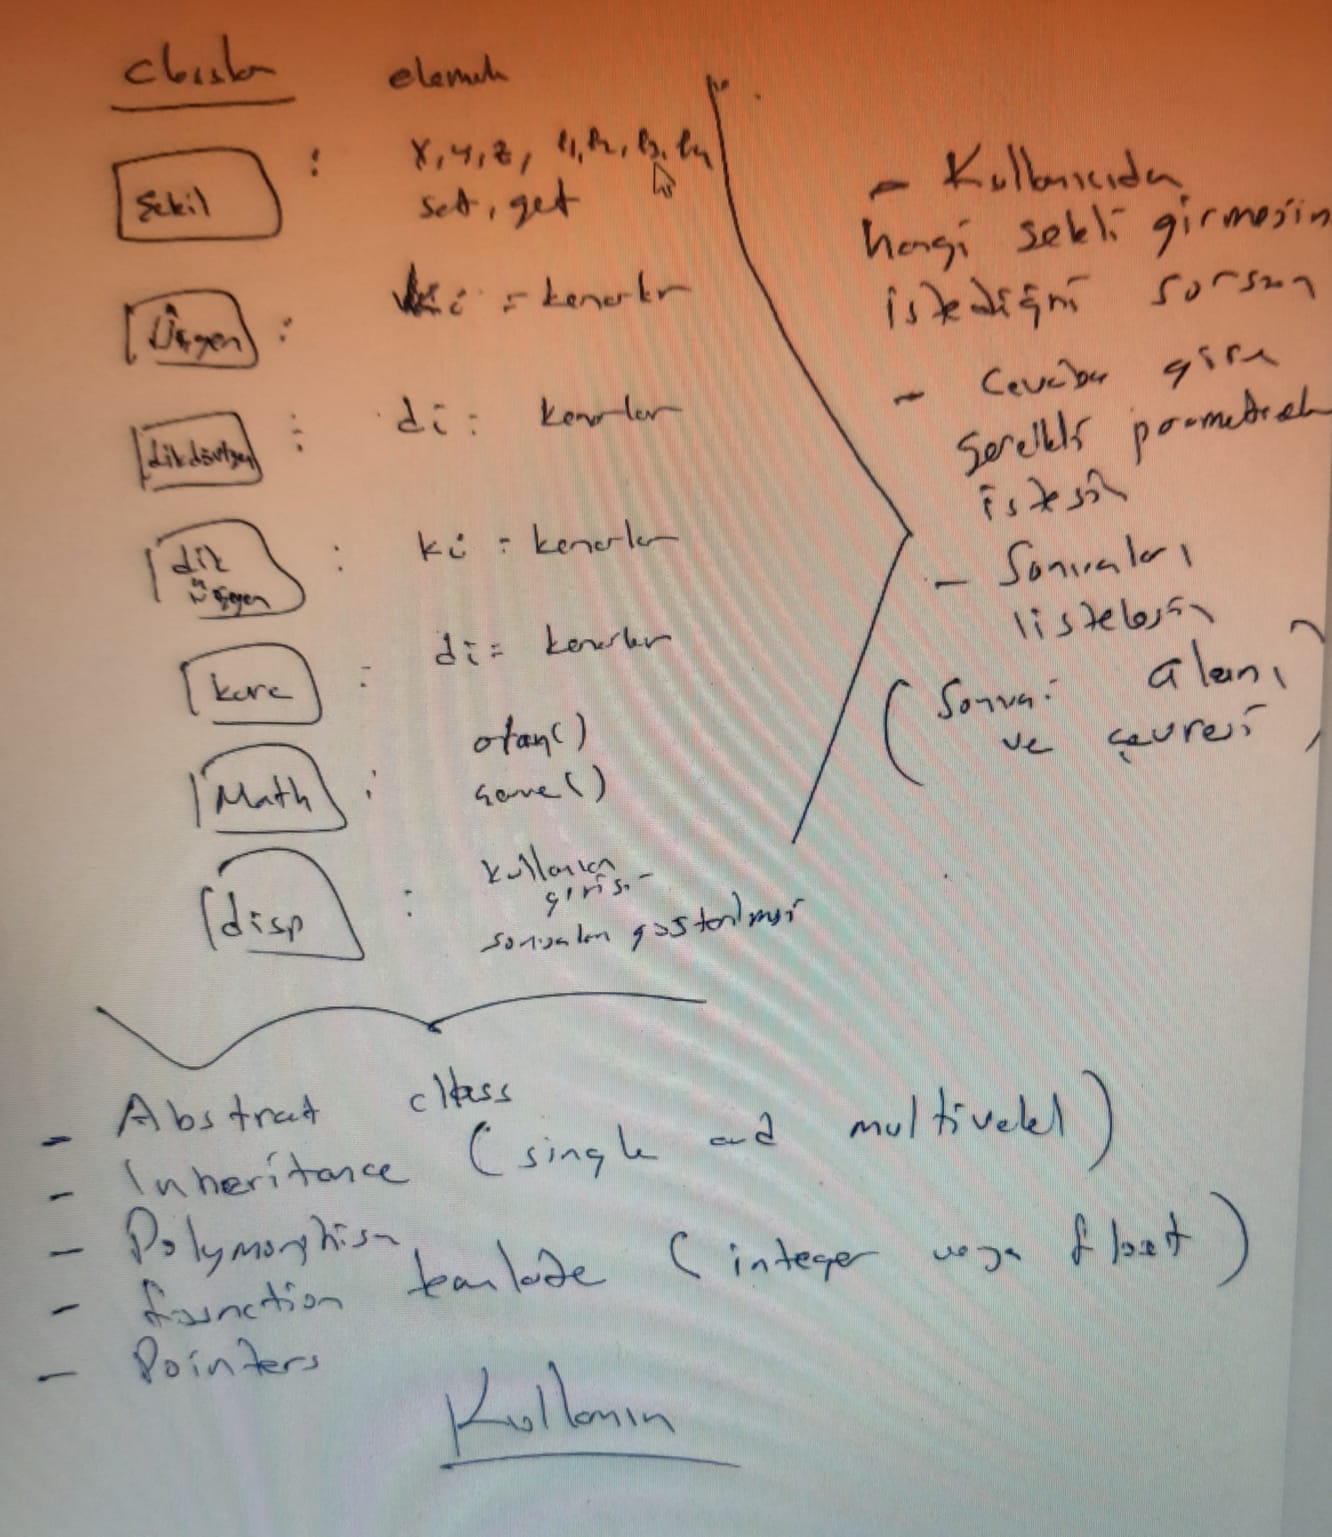 classlar elemanlar
Şekil : x, y, z, k1, k2, k3, k4
set, get
Üçgen : ki = kenarlar
dikdörtgen : di = kenarlar
dik üçgen : ki = kenarlar
kare : di = kenarlar
Math : alan()
çevre()
disp : kullanıcı
girişi
sonuçların gösterilmesi
- Kullanıcıdan
hangi şekli girmesini
istediğini sorsun
- Cevaba göre
gerekli parametreleri
istesin
- Sonuçları
listelesin
(Sonuç: alanı
ve çevresi)
- Abstract class
- Inheritance (single and multivelel)
- Polymorphism
- function template (integer veya float)
- Pointers
Kullanın